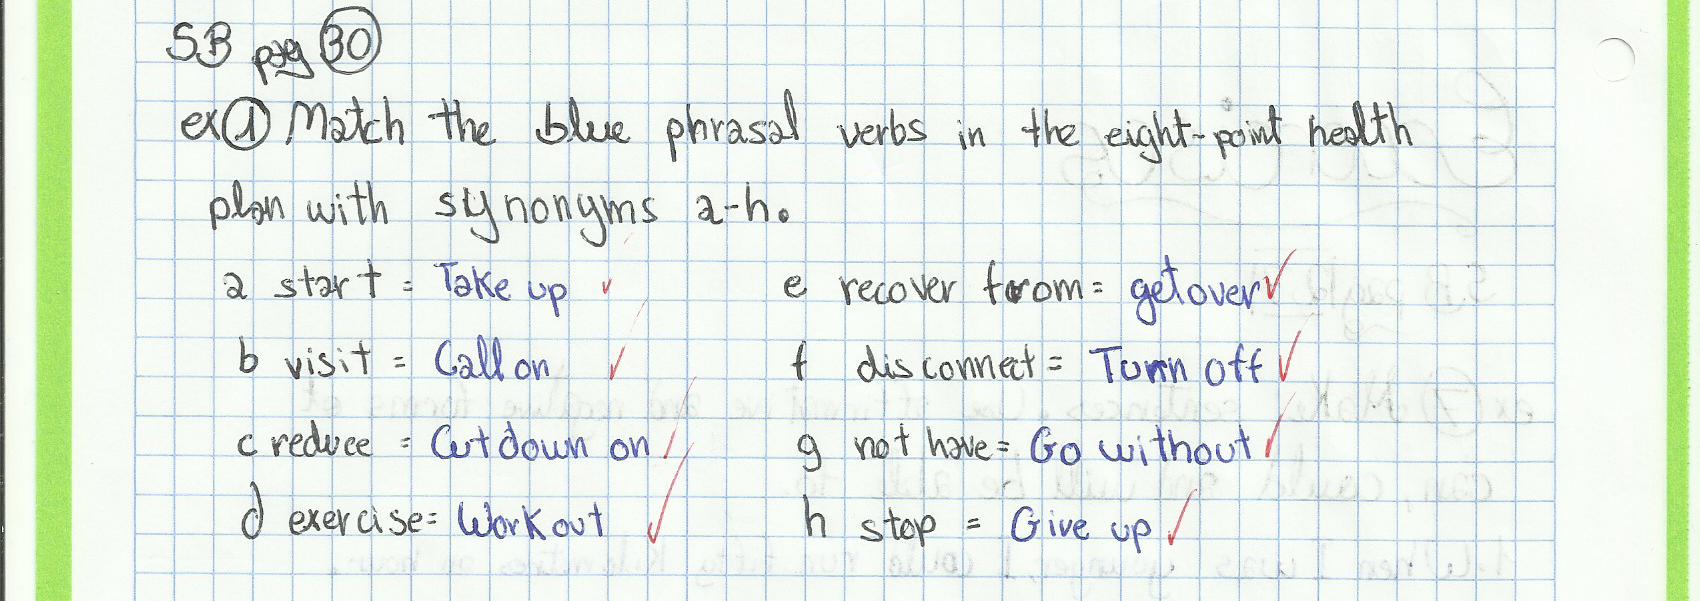 SB pag 30
ex 1 Match the blue phrasal verbs in the eight-point health
plan with synonyms a-h.
a start = Take up
e recover from = get over
b visit = Call on
f disconnect = Turn off
c reduce = Cut down on
g not have = Go without
d exercise = Work out
h stop = Give up